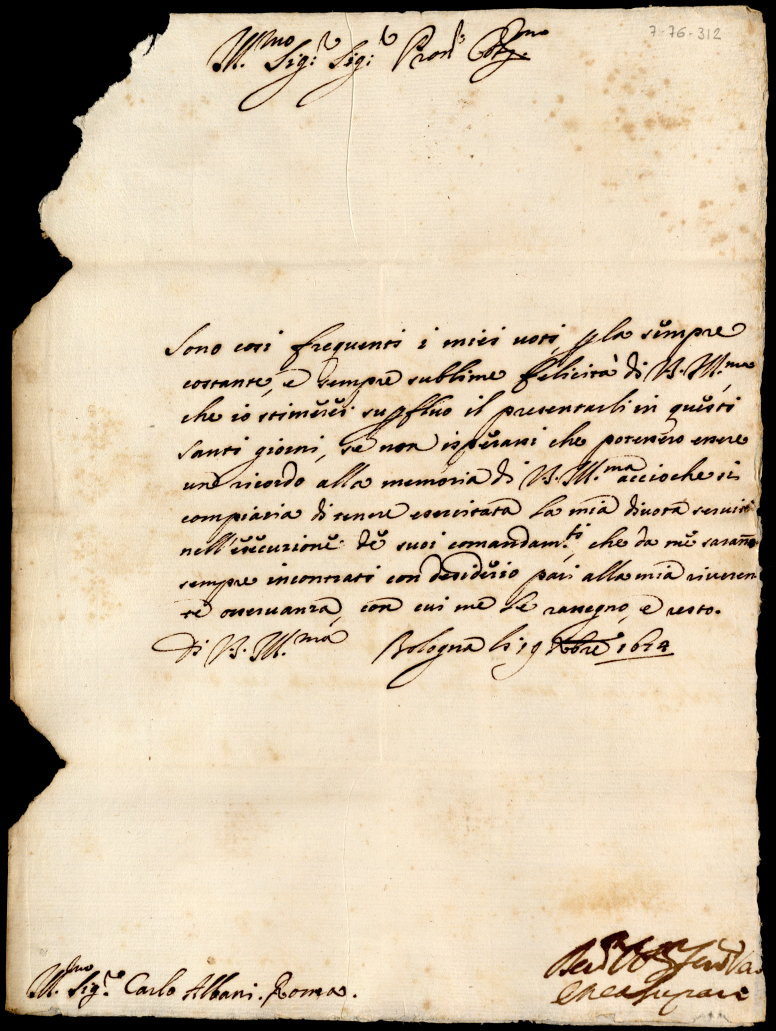 7-76-312
Ill.mo Sig.r Sig.r Pron.e Col.mo
Sono così frequenti i miei voti, p la sempre
costante, e sempre sublime felicità di V.S. Ill.ma
che io stimerei supfluo il presentarli in questi
santi giorni, se non isperassi che potessero essere
un ricordo alla memoria di V.S. Ill.ma acciò che si
compiaccia di tenere esercitata la mia divota servitù
nell'esecuzione de suoi comandam.ti, che da me saranno
sempre incontrati con desiderio pari alla mia riveren
te osservanza, con cui me le rassegno, e resto.
Di V.S. Ill.ma Bologna li 19 Xbre
Ill.mo Sig.r Carlo Albani. Roma.